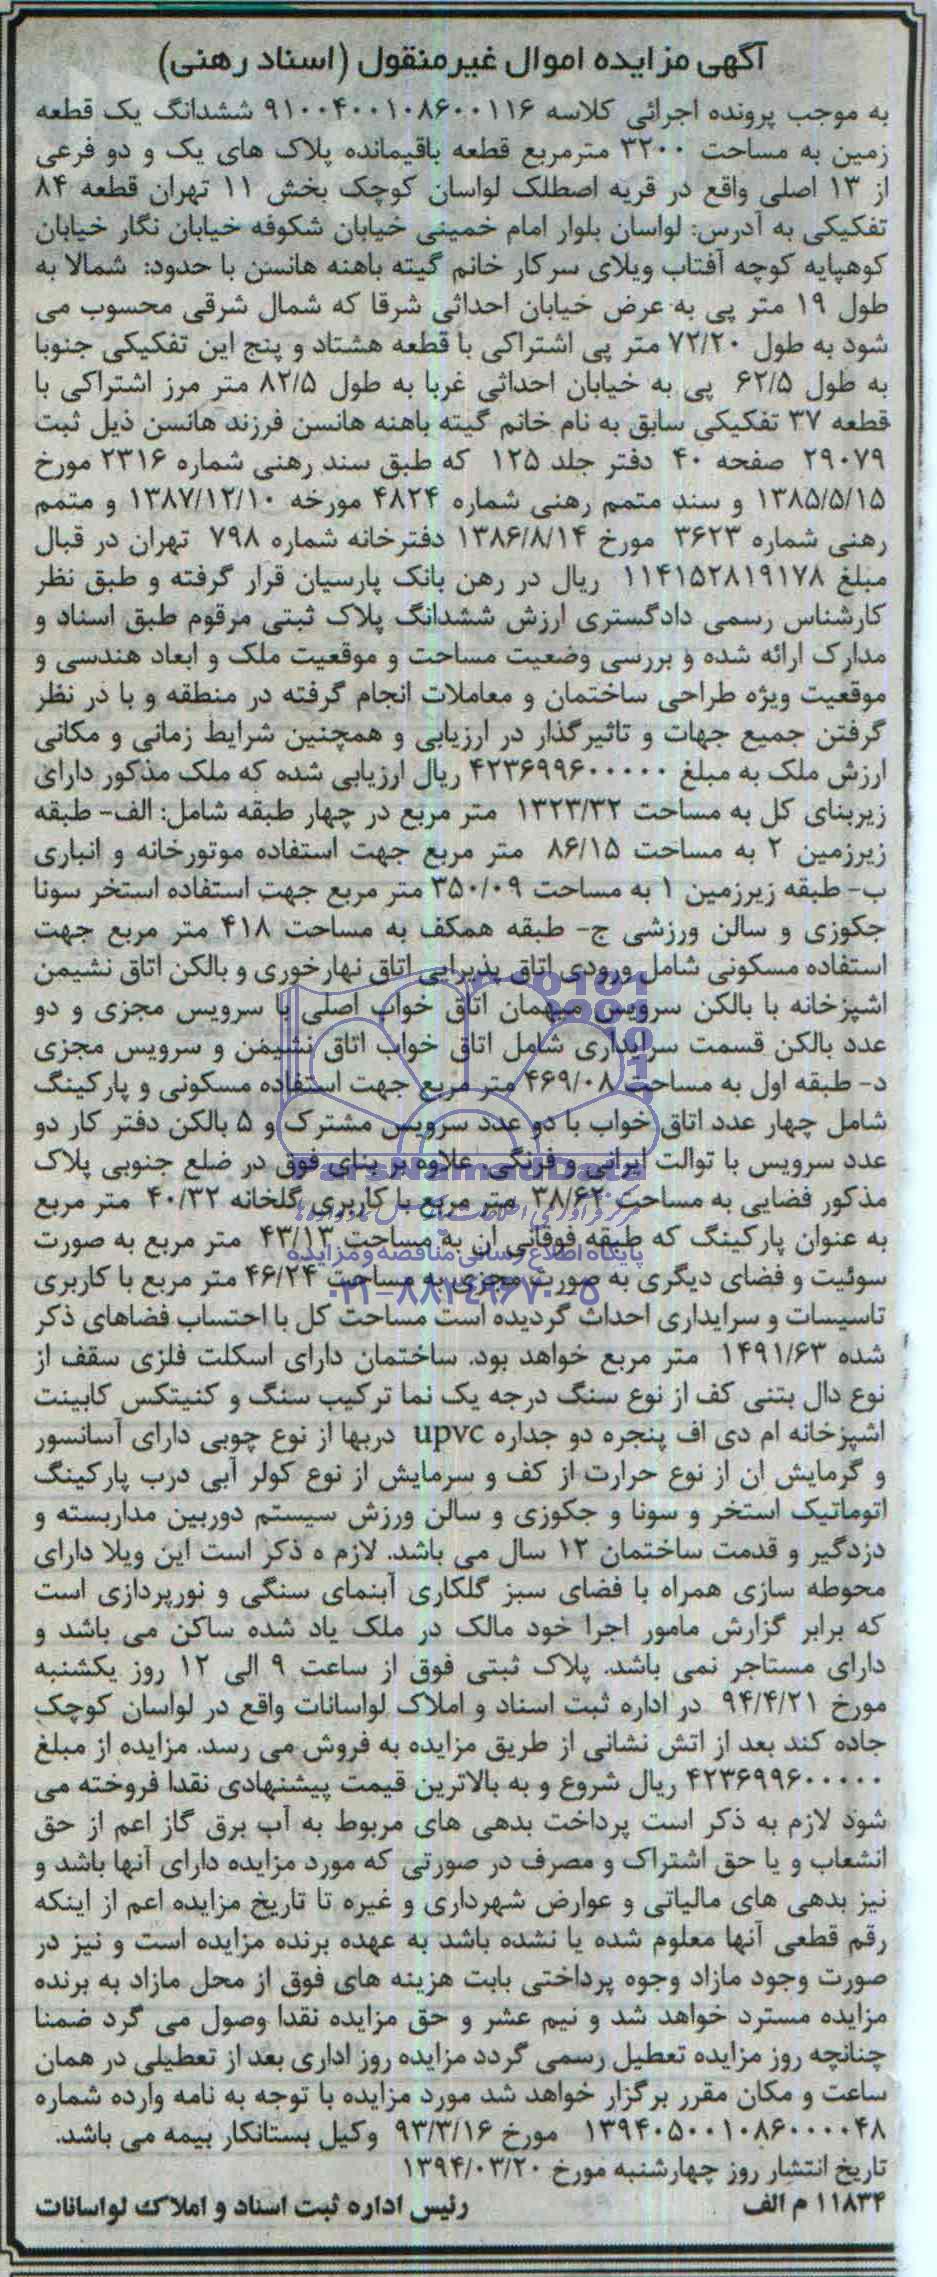 آگهی مزایده اموال غیرمنقول (اسناد رهنی)
به موجب پرونده اجرائی کلاسه ۹۱۰۰۴۰۰۱۰۸۶۰۰۱۱۶ ششدانگ یک قطعه
زمین به مساحت ۳۲۰۰ مترمربع قطعه باقیمانده پلاک های یک و دو فرعی
از ۱۳ اصلی واقع در قریه اصطلک لواسان کوچک بخش ۱۱ تهران قطعه ۸۴
تفکیکی به آدرس: لواسان بلوار امام خمینی خیابان شکوفه خیابان نگار خیابان
کوهپایه کوچه آفتاب ویلای سرکار خانم گیته باهنه هانسن با حدود: شمالا به
طول ۱۹ متر پی به عرض خیابان احداثی شرقا که شمال شرقی محسوب می
شود به طول ۷۲/۲۰ متر پی اشتراکی با قطعه هشتاد و پنج این تفکیکی جنوبا
به طول ۶۲/۵ پی به خیابان احداثی غربا به طول ۸۲/۵ متر مرز اشتراکی با
قطعه ۳۷ تفکیکی سابق به نام خانم گیته باهنه هانسن فرزند هانسن ذیل ثبت
۲۹۰۷۹ صفحه ۴۰ دفتر جلد ۱۲۵ که طبق سند رهنی شماره ۲۳۱۶ مورخ
۱۳۸۵/۵/۱۵ و سند متمم رهنی شماره ۴۸۲۴ مورخه ۱۳۸۷/۱۲/۱۰ و متمم
رهنی شماره ۳۶۲۳ مورخ ۱۳۸۶/۸/۱۴ دفترخانه شماره ۷۹۸ تهران در قبال
مبلغ ۱۱۴۱۵۲۸۱۹۱۷۸ ریال در رهن بانک پارسیان قرار گرفته و طبق نظر
کارشناس رسمی دادگستری ارزش ششدانگ پلاک ثبتی مرقوم طبق اسناد و
مدارک ارائه شده و بررسی وضعیت مساحت و موقعیت ملک و ابعاد هندسی و
موقعیت ویژه طراحی ساختمان و معاملات انجام گرفته در منطقه و با در نظر
گرفتن جمیع جهات و تاثیرگذار در ارزیابی و همچنین شرایط زمانی و مکانی
ارزش ملک به مبلغ ۴۲۳۶۹۹۶۰۰۰۰۰ ریال ارزیابی شده که ملک مذکور دارای
زیربنای کل به مساحت ۱۳۲۳/۳۲ متر مربع در چهار طبقه شامل: الف- طبقه
زیرزمین ۲ به مساحت ۸۶/۱۵ متر مربع جهت استفاده موتورخانه و انباری
ب- طبقه زیرزمین ۱ به مساحت ۳۵۰/۰۹ متر مربع جهت استفاده استخر سونا
جکوزی و سالن ورزشی ج- طبقه همکف به مساحت ۴۱۸ متر مربع جهت
استفاده مسکونی شامل ورودی اتاق پذیرایی اتاق نهارخوری و بالکن اتاق نشیمن
اشپزخانه با بالکن سرویس میهمان اتاق خواب اصلی با سرویس مجزی و دو
عدد بالکن قسمت سرایداری شامل اتاق خواب اتاق نشیمن و سرویس مجزی
د- طبقه اول به مساحت ۴۶۹/۰۸ متر مربع جهت استفاده مسکونی و پارکینگ
شامل چهار عدد اتاق خواب با دو عدد سرویس مشترک و ۵ بالکن دفتر کار دو
عدد سرویس با توالت ایرانی و فرنگی. علاوه بر بنای فوق در ضلع جنوبی پلاک
مذکور فضایی به مساحت ۳۸/۶۲ متر مربع با کاربری گلخانه ۴۰/۳۲ متر مربع
به عنوان پارکینگ که طبقه فوقانی ان به مساحت ۴۳/۱۳ متر مربع به صورت
پایگاه اطلاع رسانی مناقصه و مزایده
سوئیت و فضای دیگری به صورت مجزی به مساحت ۴۶/۲۴ متر مربع با کاربری
۰۲۱-۸۸۳۴۹۶۷۰-۵
تاسیسات و سرایداری احداث گردیده است مساحت کل با احتساب فضاهای ذکر
شده ۱۴۹۱/۶۳ متر مربع خواهد بود. ساختمان دارای اسکلت فلزی سقف از
نوع دال بتنی کف از نوع سنگ درجه یک نما ترکیب سنگ و کنیتکس کابینت
اشپزخانه ام دی اف پنجره دو جداره upvc دربها از نوع چوبی دارای آسانسور
و گرمایش ان از نوع حرارت از کف و سرمایش از نوع کولر آبی درب پارکینگ
اتوماتیک استخر و سونا و جکوزی و سالن ورزش سیستم دوربین مداربسته و
دزدگیر و قدمت ساختمان ۱۲ سال می باشد. لازم ه ذکر است این ویلا دارای
محوطه سازی همراه با فضای سبز گلکاری آبنمای سنگی و نورپردازی است
که برابر گزارش مامور اجرا خود مالک در ملک یاد شده ساکن می باشد و
دارای مستاجر نمی باشد. پلاک ثبتی فوق از ساعت ۹ الی ۱۲ روز یکشنبه
مورخ ۹۴/۴/۲۱ در اداره ثبت اسناد و املاک لواسانات واقع در لواسان کوچک
جاده کند بعد از اتش نشانی از طریق مزایده به فروش می رسد. مزایده از مبلغ
۴۲۳۶۹۹۶۰۰۰۰۰ ریال شروع و به بالاترین قیمت پیشنهادی نقدا فروخته می
شود لازم به ذکر است پرداخت بدهی های مربوط به آب برق گاز اعم از حق
انشعاب و یا حق اشتراک و مصرف در صورتی که مورد مزایده دارای آنها باشد و
نیز بدهی های مالیاتی و عوارض شهرداری و غیره تا تاریخ مزایده اعم از اینکه
رقم قطعی آنها معلوم شده یا نشده باشد به عهده برنده مزایده است و نیز در
صورت وجود مازاد وجوه پرداختی بابت هزینه های فوق از محل مازاد به برنده
مزایده مسترد خواهد شد و نیم عشر و حق مزایده نقدا وصول می گرد ضمنا
چنانچه روز مزایده تعطیل رسمی گردد مزایده روز اداری بعد از تعطیلی در همان
ساعت و مکان مقرر برگزار خواهد شد مورد مزایده با توجه به نامه وارده شماره
۱۳۹۴۰۵۰۰۱۰۸۶۰۰۰۰۴۸ مورخ ۹۳/۳/۱۶ وکیل بستانکار بیمه می باشد.
تاریخ انتشار روز چهارشنبه مورخ ۱۳۹۴/۰۳/۲۰
۱۱۸۳۴ م الف رئیس اداره ثبت اسناد و املاک لواسانات